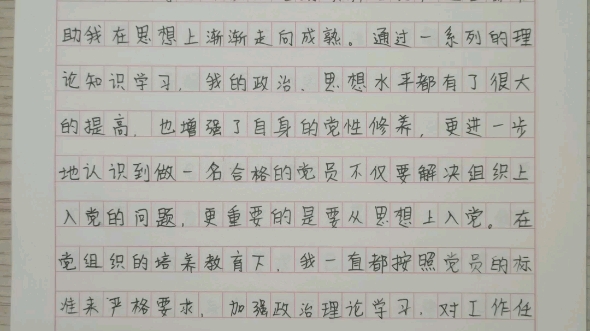 助我在思想上渐渐走向成熟。通过一系列的理
论知识学习,我的政治、思想水平都有了很大
的提高,也增强了自身的党性修养,更进一步
地认识到做一名合格的党员不仅要解决组织上
入党的问题,更重要的是要从思想上入党。在
党组织的培养教育下,我一直都按照党员的标
准来严格要求,加强政治理论学习,对工作任